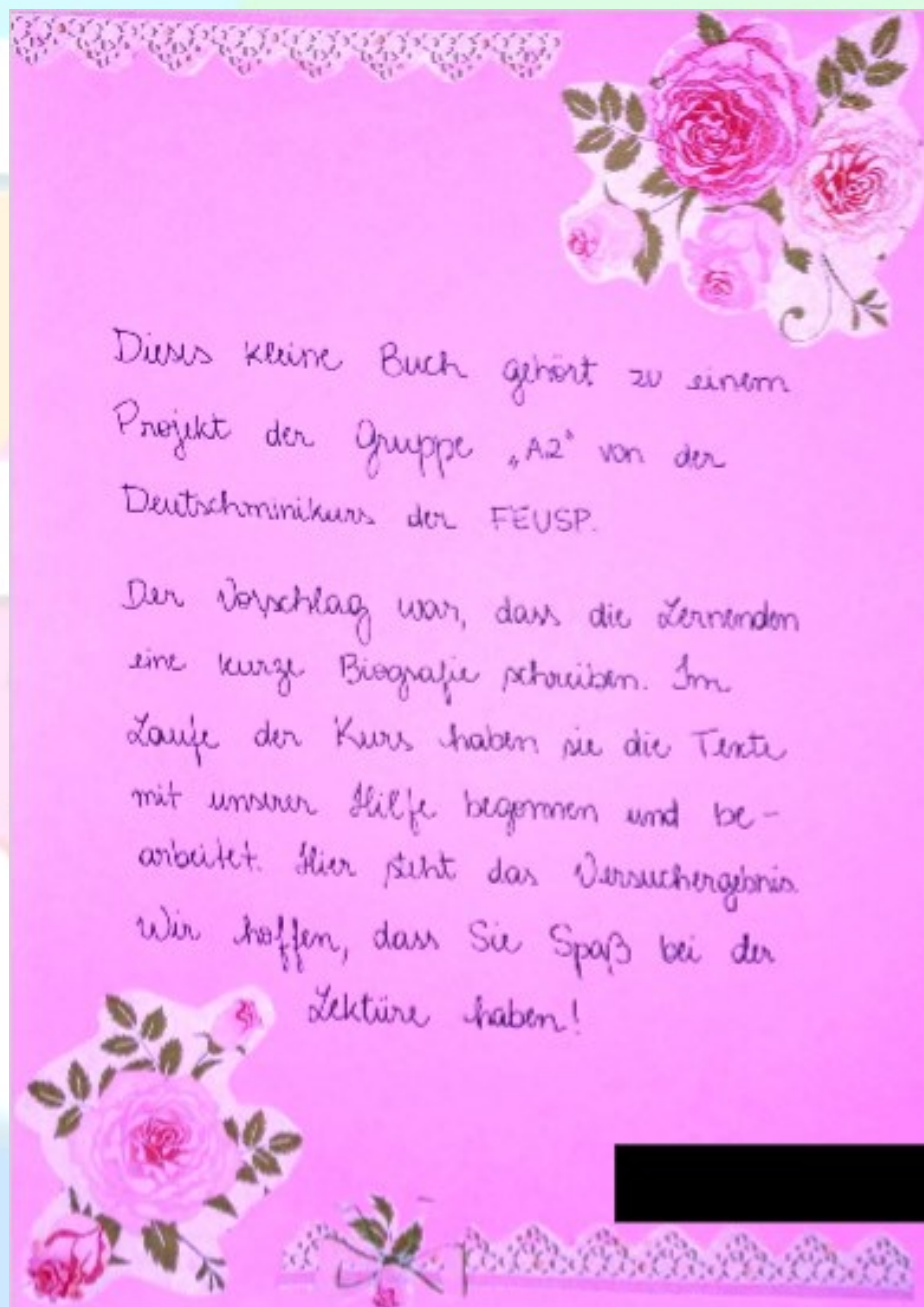 Dieses kleine Buch gehört zu einem
Projekt der Gruppe „A2“ von der
Deutschminikurs der FEUSP.
Der Vorschlag war, dass die Lernenden
eine kurze Biografie schreiben. Im
Laufe der Kurs haben sie die Texte
mit unserer Hilfe begonnen und be-
arbeitet. Hier steht das Versuchergebnis
Wir hoffen, dass Sie Spaß bei der
Lektüre haben!